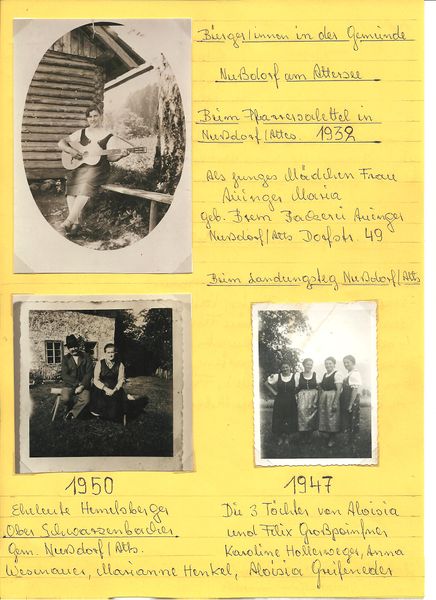 Bürger/innen in der Gemeinde
Nußdorf am Attersee
Beim Pfarrersalettel in
Nußdorf/Atts. 1932
Als junges Mädchen Frau
Auinger Maria
geb. Brem Bäckerei Auinger
Nußdorf/Atts Dorfstr. 49
Beim Landungsteg Nußdorf/Atts
1950
1947
Eheleute Hemelsberger
Ober Schwarzenbacher
Gem. Nußdorf/Atts.
Die 3 Töchter von Aloisia
und Felix Großpointner
Karoline Hollerweger, Anna
Wesenauer, Marianne Henkel, Aloisia Greifeneder